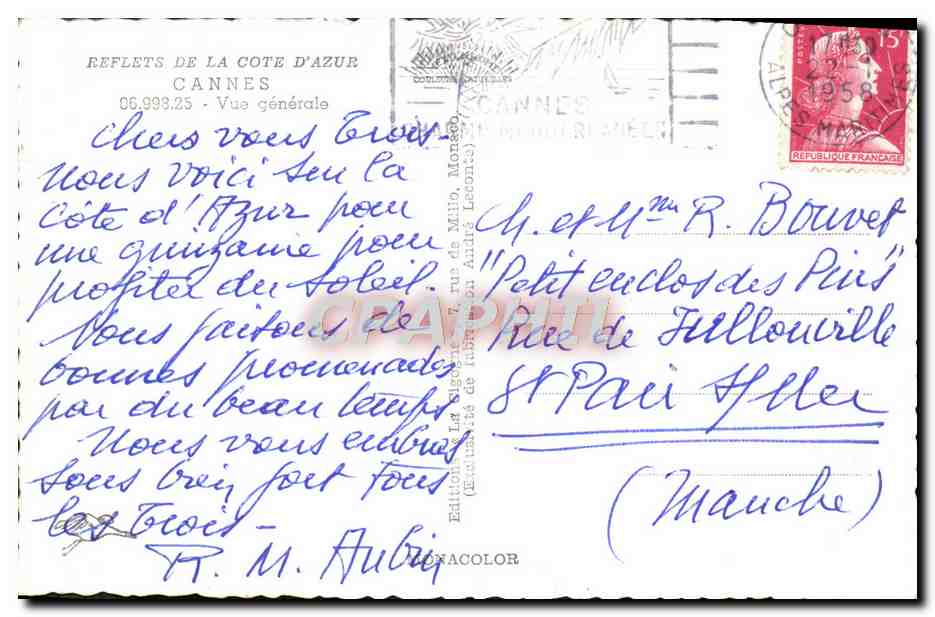 REFLETS DE LA COTE D'AZUR
CANNES
06.998.25 - Vue générale
Chers vous Trois-
Nous voici sur la
Côte d'Azur pour
une quinzaine pour
profiter du soleil.
Nous faisons de
bonnes promenades
par du beau temps
Nous vous embras
sons bien fort tous
les Trois-
R. M. Aubin
Editions La Cigogne 7, rue de Millo, Monaco
(Exclusivité de fabrication André Leconte)
MONACOLOR
CANNES
15F
POSTES
22-
1958
ALPES MAR
REPUBLIQUE FRANÇAISE
M. et Mme R. Bouvet
"Petit enclos des Pins"
Rue de Jullouville
St Pair s/Mer
(Manche)
CPAPHIL